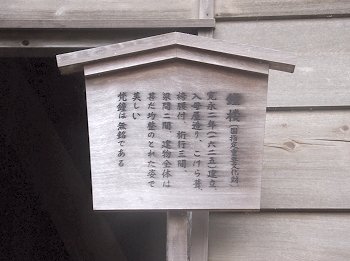 鐘楼(国指定重要文化財)
寛永二年(一六二五)建立、
入母屋造り、こけら葺、
袴腰付、桁行三間、
梁間二間、建物全体は
甚だ均整のとれた姿で
美しい
梵鐘は無銘である